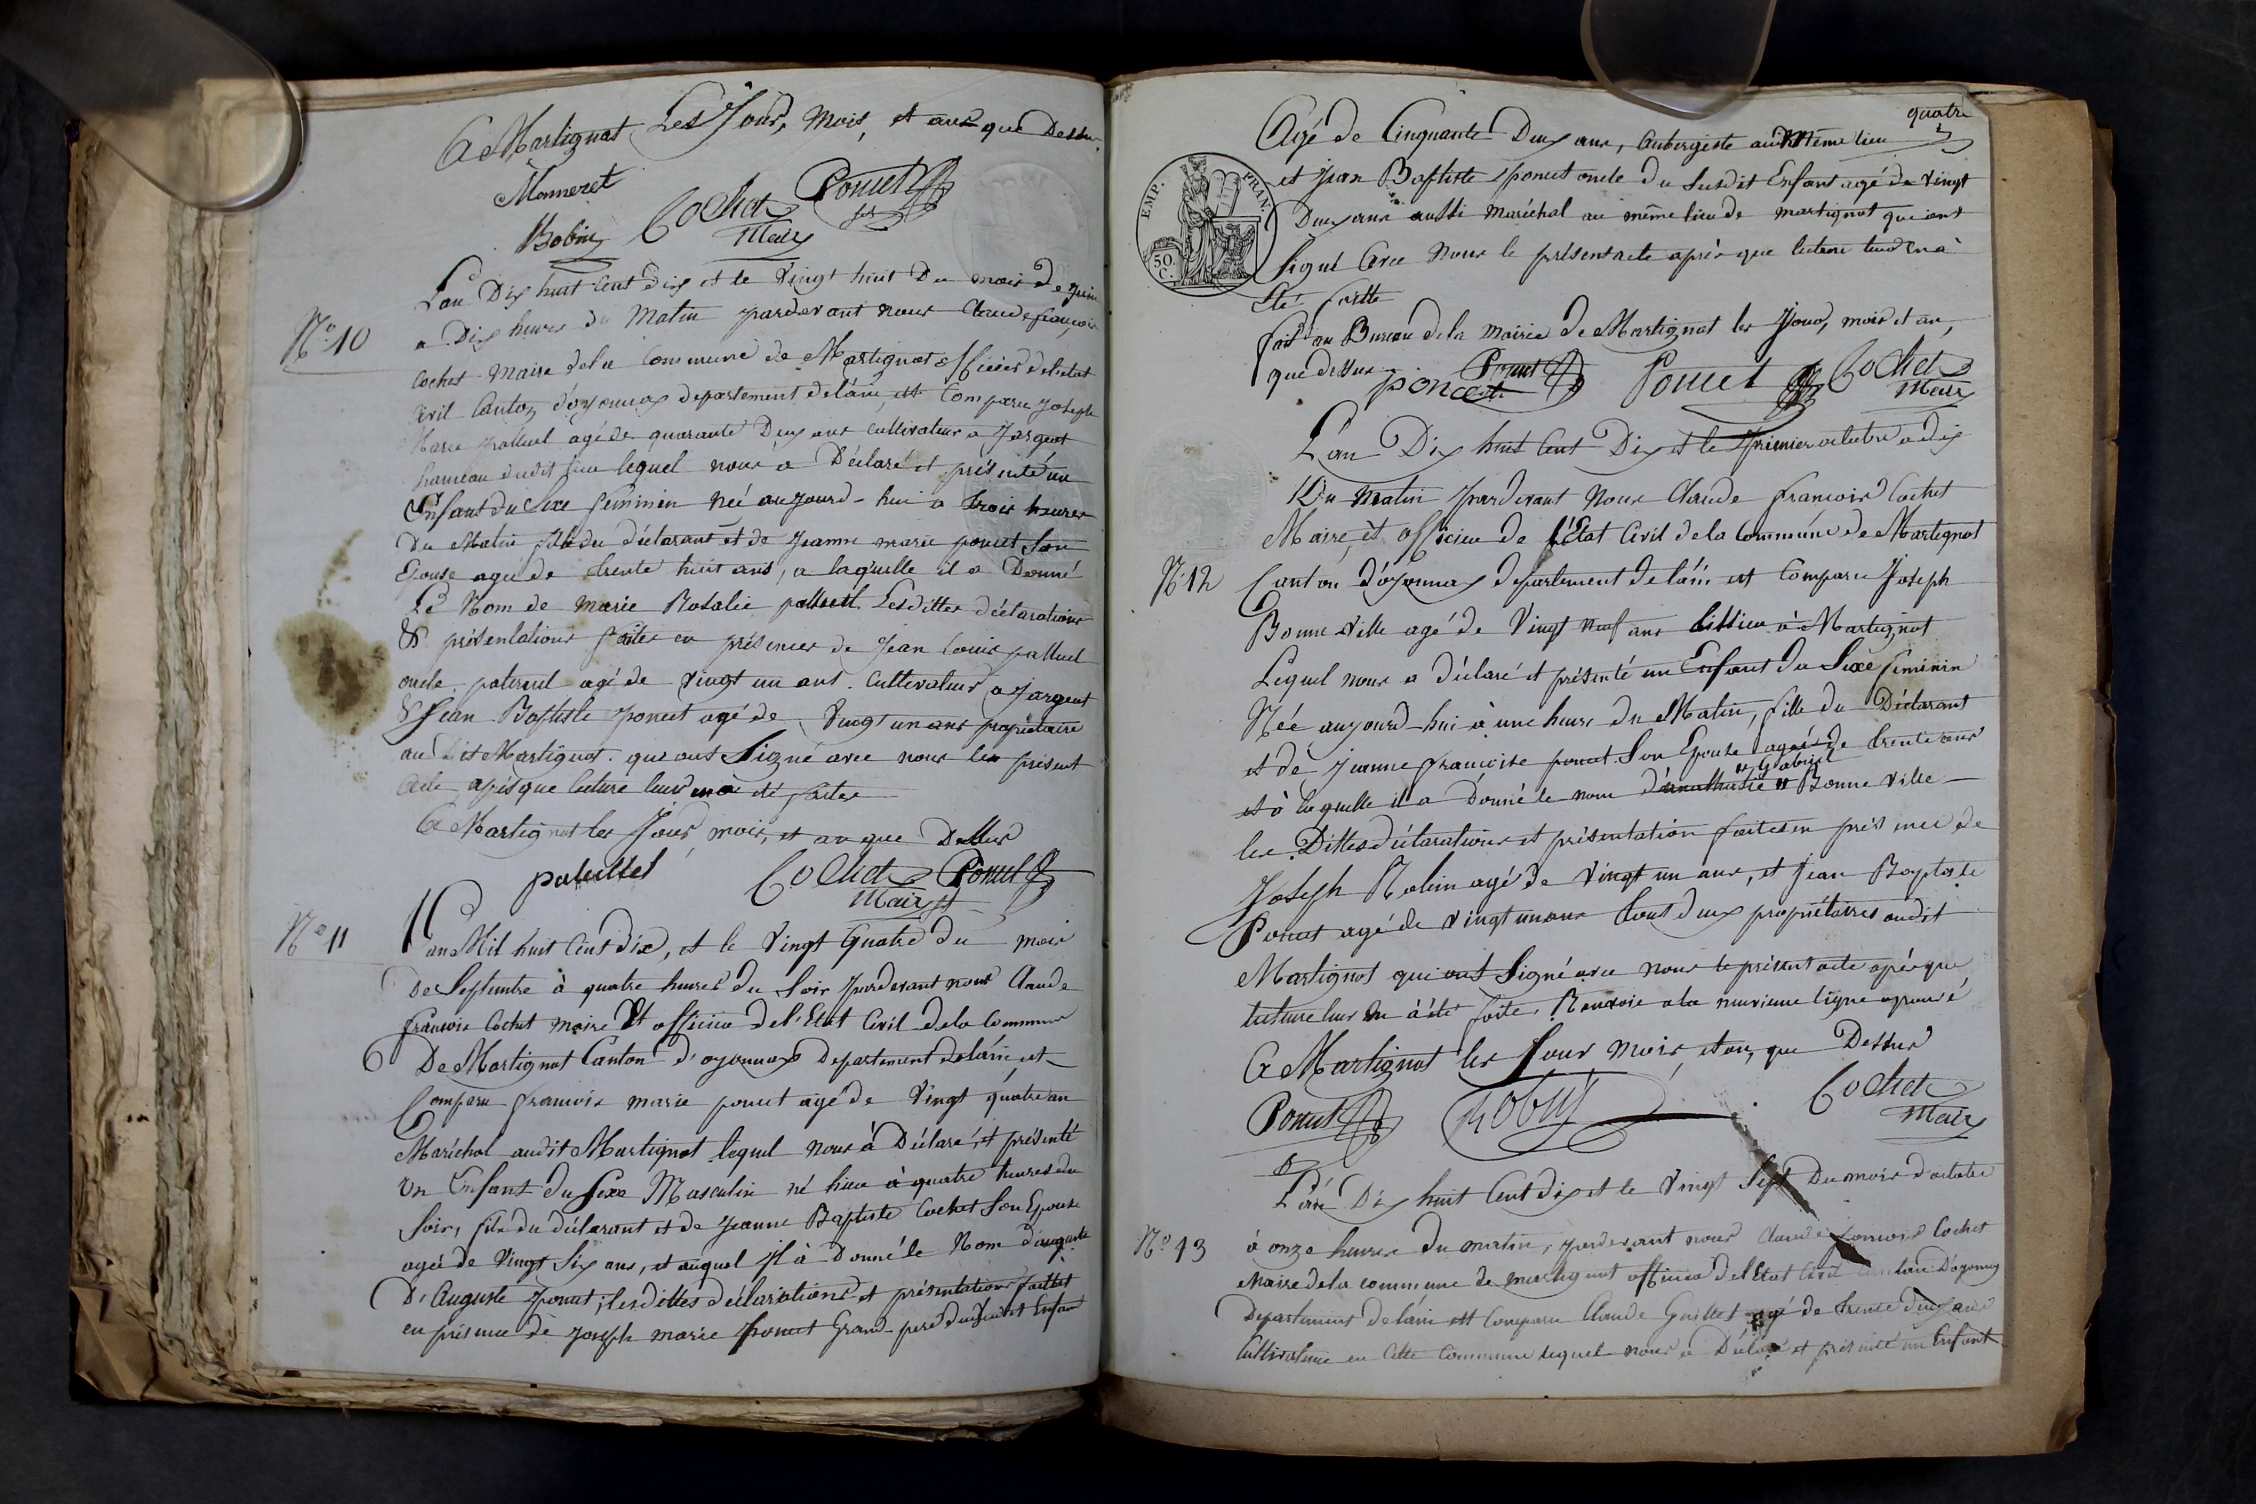 A Martignat Les Jour, Mois, et ans que Dessu.
Momeret
Poncet
Cochet
Maire
Robin
L'an Dix huit Cent dix et le Vingt huit Du mois de juin
N.° 10
a Dix heures du Matin pardevant nous Claude françois
Cochet Maire dela Commune de Martignat officier de l'etat
Civil Canton d'oyonnax departement de l'ain, est Comparu joseph
Marie palluel agé de quarante Deux ans cultivateur a jargeat
hameau dudit lieu lequel nous a Déclaré et présenté un
Enfant du Sexe féminin née aujourd-hui a trois heures
Du Matin fille du déclarant et de jeanne marie poncet Son
Epouse agée de trente huit ans, a laquelle il a Donné
Le Nom de Marie Rosalie palluel. Lesdittes déclarations
& présentations faites en présences de jean Louis palluel
oncle paternel agé de vingt un ans Cultivateur a jargeat
& Jean Baptiste poncet agé de Vingt un ans propriétaire
audit Martignat qui ont Signé avec nous le présent
acte après que lecture leur en a été faitte
A Martignat les Jour, mois, et an que Dessus
Cochet
Maire
Poncet
N° 11
L'an Mil huit Cent dix, et le Vingt Quatre du mois
De Septembre à quatre heures du Soir pardevant nous Claude
françois Cochet maire Et officier de l'Etat Civil dela Commune
De Martignat Canton d'oyonnax Departement de l'ain, est
Comparu françois marie poncet agé de Vingt quatre an
Maréchal audit Martignat lequel nous à Déclaré, et présenté
Un Enfant du Sexe Masculin né hier à quatre heures du
Soir, fils du déclarant et de jeanne Baptiste Cochet Son Epouse
agée de Vingt Six ans, et auquel Il à Donné le Nom d'auguste
D'Auguste poncet; lesdittes déclarations et présentations faittes
en présence de joseph marie poncet Grand-pere dudit Enfant
quatre
Agé de Cinquante Deux ans, Aubergiste audit Même lieu
et jean Baptiste poncet oncle du Susdit Enfant agé de vingt
Deux ans aussi maréchal au même lieu de martignat qui ont
EMP. FRAN.
50. C.
Signé Avec Nous le présent acte après que lecture leur en a
Eté faitte
fait au Bureau dela Mairie de Martignat les Jour, mois et an,
que dessus
poncet
Poncet
Poncet
Cochet
Maire
L'an Dix huit Cent Dix et le premier octobre a dix
Du Matin pardevant Nous Claude francois Cochet
Maire, et officier de l'Etat Civil dela Commune de Martignat
N.° 12
Canton d'oyonnax departement de l'ain est Comparu Joseph
Bonne Ville agé de Vingt Neuf ans à Martignat
Lequel nous a déclaré et présenté un Enfant du Sexe féminin
Née aujourd-hui à une heure du Matin, fille du Déclarant
et de jeanne françoise poncet Son Epouse agée de trente ans
" Gabriel
et à laquelle il a Donné le nom " Bonne Ville
les Dittes déclarations et présentation faites en présence de
Joseph Robin agé de Vingt un ans, et Jean Baptiste
Poncet agé de vingt un ans tout deux propriétaires audit
Martignat qui ont Signé avec nous le présent acte après que
lecture leur en à été faite. Renvoie a la neuvieme ligne aprouvé
A Martignat les Jour Mois, et an, que Dessus
Poncet
Robin
Cochet
Maire
L'an Dix huit Cent dix et le Vingt Sept Du mois d'octobre
N° 13
à onze heures du matin, pardevant nous Claude francois Cochet
Maire dela commune de martignat officier del Etat Civil Canton D'oyonnax
Departement de l'ain est Comparu Claude Guillet agé de trente deux ans
Cultivateur en Cette Commune lequel nous a Déclaré et présenté un Enfant